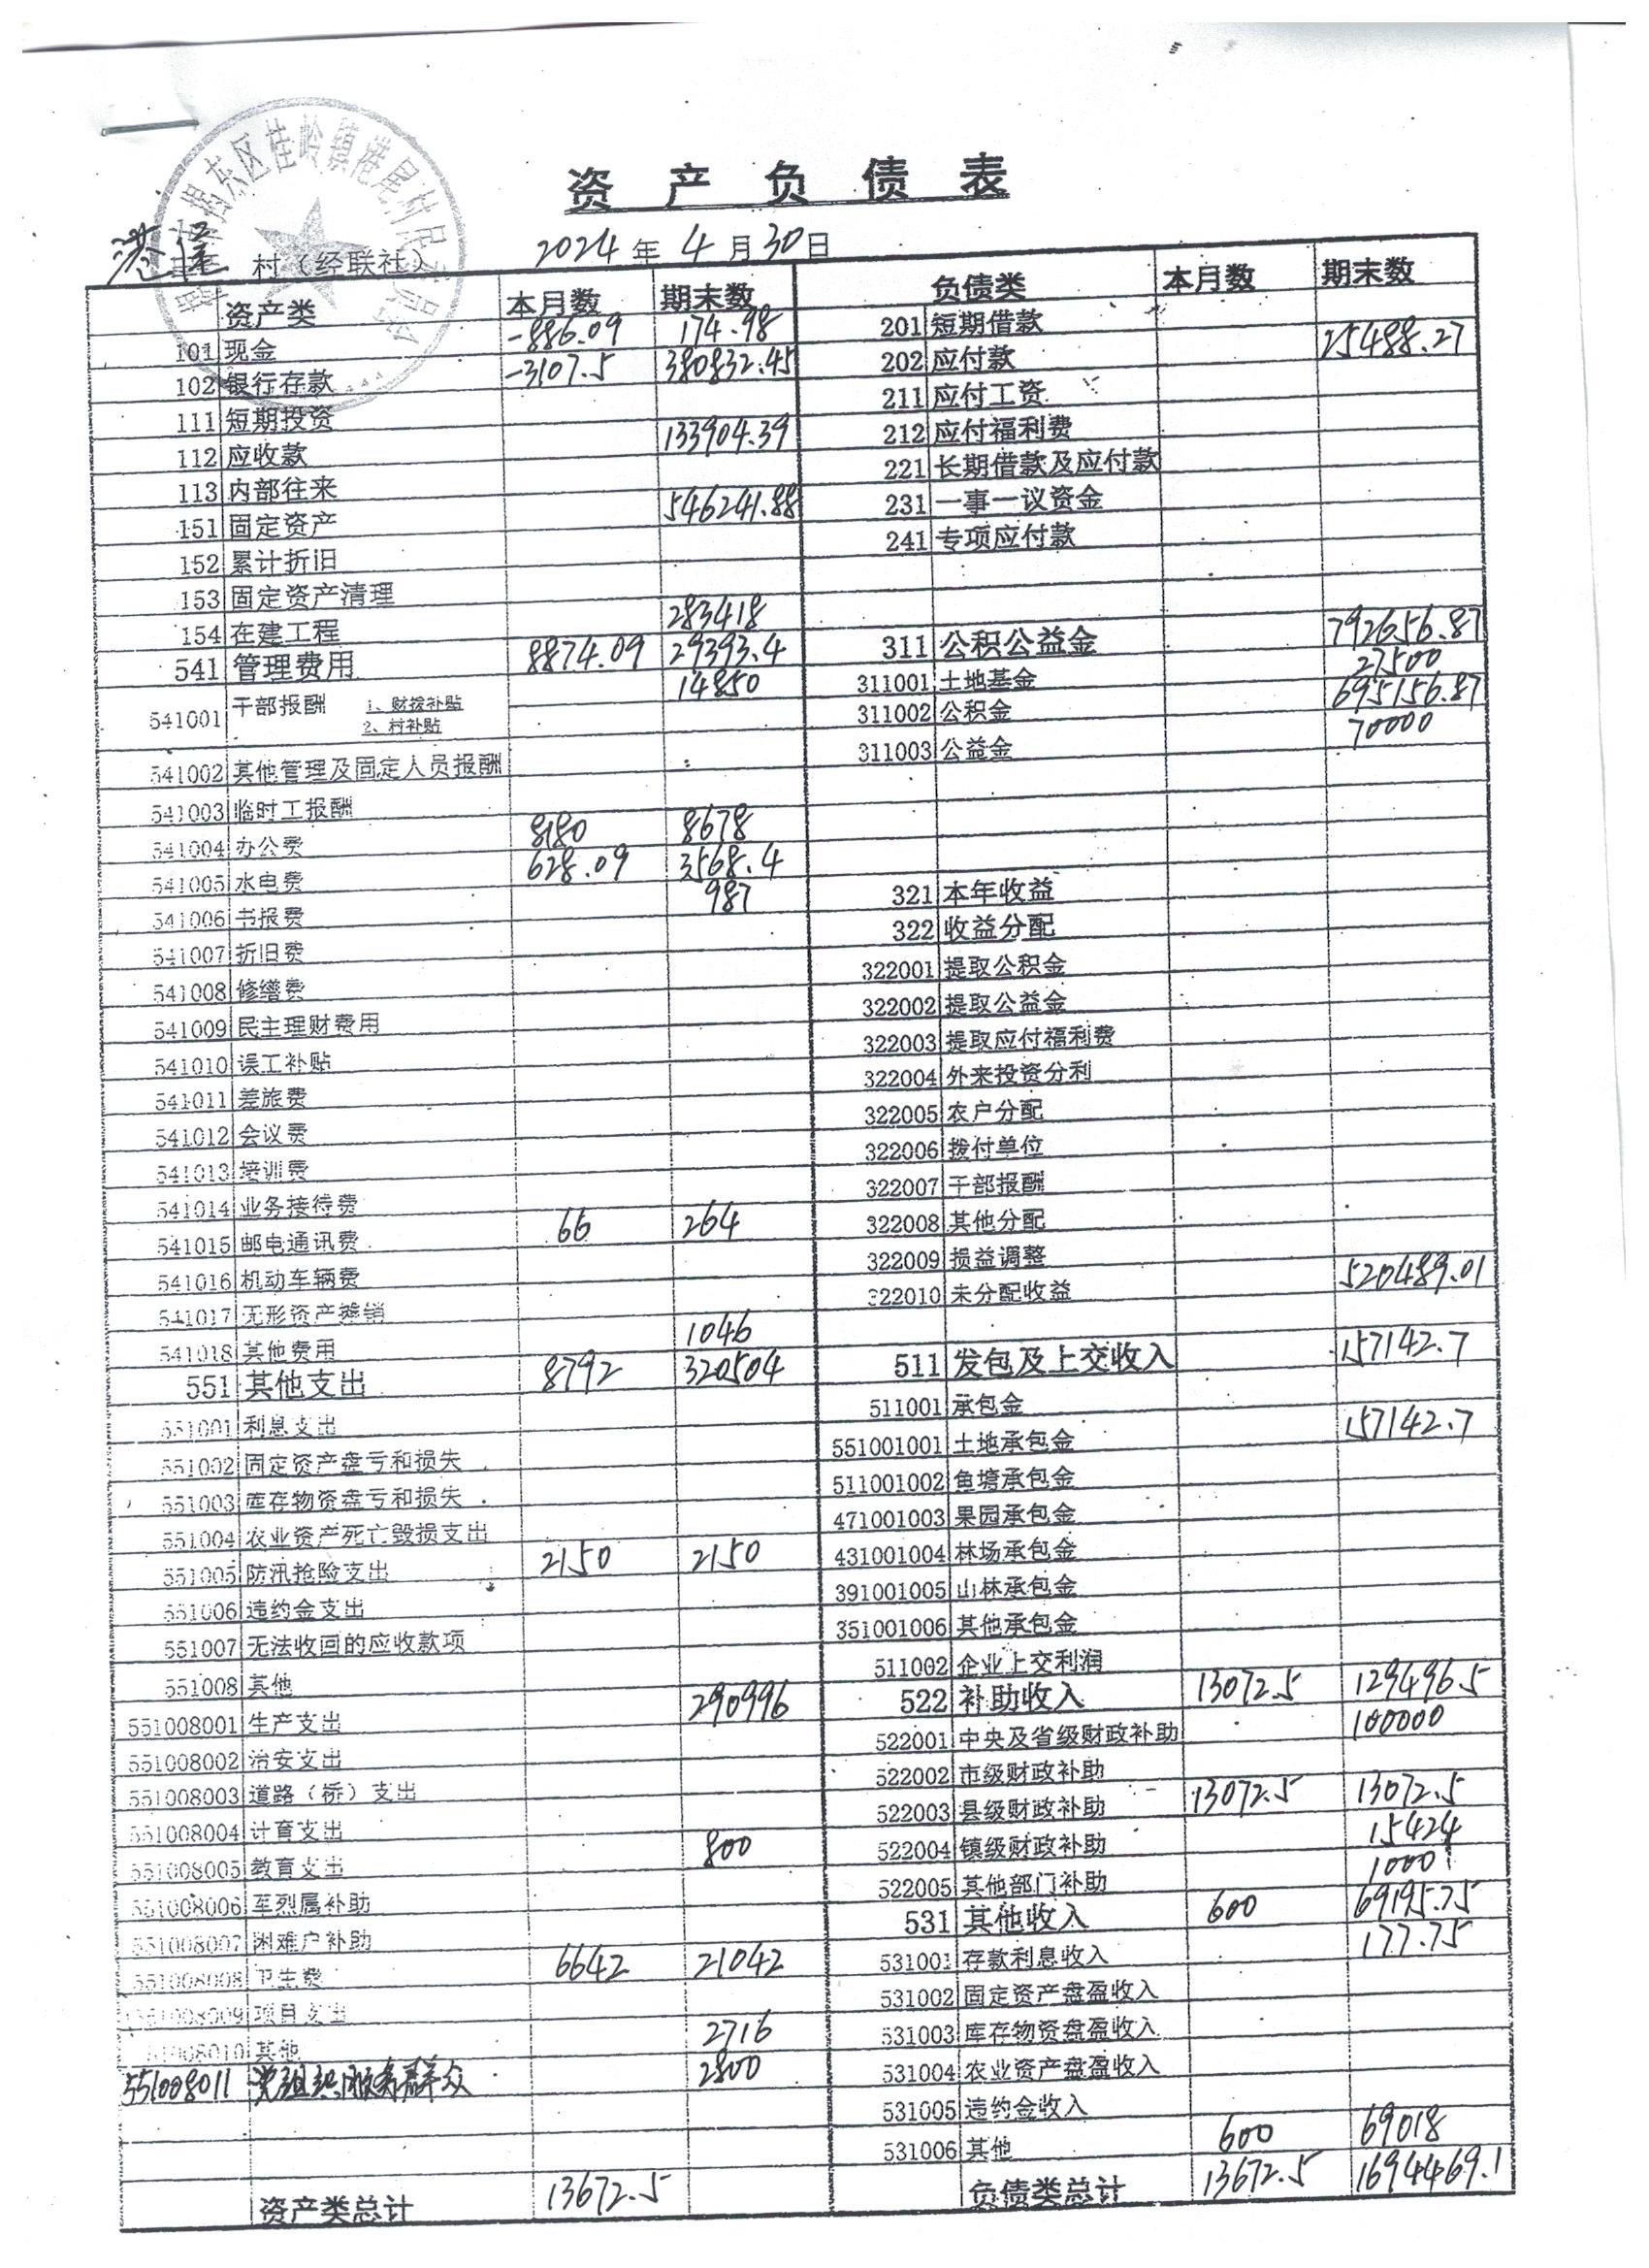 资产负债表
港尾 村（经联社） 2024 年 4 月 30 日
揭东区桂岭镇港尾村民委员会
资产类 本月数 期末数 负债类 本月数 期末数
101 现金 -886.09 174.98 201 短期借款
102 银行存款 -3107.5 380832.45 202 应付款 25488.27
111 短期投资 211 应付工资
112 应收款 133904.39 212 应付福利费
113 内部往来 221 长期借款及应付款
151 固定资产 546241.88 231 一事一议资金
152 累计折旧 241 专项应付款
153 固定资产清理
154 在建工程 283418
541 管理费用 8874.09 29393.4 311 公积公益金 792656.87
541001 干部报酬 1、财拨补贴 14850 311001 土地基金 27500
2、村补贴 311002 公积金 695156.87
541002 其他管理及固定人员报酬 311003 公益金 70000
541003 临时工报酬
541004 办公费 8180 8678
541005 水电费 628.09 3568.4
541006 书报费 987 321 本年收益
541007 折旧费 322 收益分配
541008 修缮费 322001 提取公积金
541009 民主理财费用 322002 提取公益金
541010 误工补贴 322003 提取应付福利费
541011 差旅费 322004 外来投资分利
541012 会议费 322005 农户分配
541013 培训费 322006 拨付单位
541014 业务接待费 322007 干部报酬
541015 邮电通讯费 66 264 322008 其他分配
541016 机动车辆费 322009 损益调整
541017 无形资产摊销 322010 未分配收益 520489.01
541018 其他费用 1046
551 其他支出 8792 320504 511 发包及上交收入 157142.7
551001 利息支出 511001 承包金
551002 固定资产盘亏和损失 551001001 土地承包金 157142.7
551003 库存物资盘亏和损失 511001002 鱼塘承包金
551004 农业资产死亡毁损支出 471001003 果园承包金
551005 防汛抢险支出 2150 2150 431001004 林场承包金
551006 违约金支出 391001005 山林承包金
551007 无法收回的应收款项 351001006 其他承包金
551008 其他 511002 企业上交利润
551008001 生产支出 290996 522 补助收入 13072.5 129496.5
551008002 治安支出 522001 中央及省级财政补助 100000
551008003 道路（桥）支出 522002 市级财政补助
551008004 计育支出 522003 县级财政补助 13072.5 13072.5
551008005 教育支出 800 522004 镇级财政补助 15424
551008006 军烈属补助 522005 其他部门补助 1000
551008007 困难户补助 531 其他收入 600 69195.75
551008008 卫生费 6642 21042 531001 存款利息收入 177.75
551008009 项目支出 531002 固定资产盘盈收入
551008010 其他 2716 531003 库存物资盘盈收入
551008011 党组织服务群众 2800 531004 农业资产盘盈收入
531005 违约金收入
531006 其他 600 69018
资产类总计 13672.5 负债类总计 13672.5 1694469.1